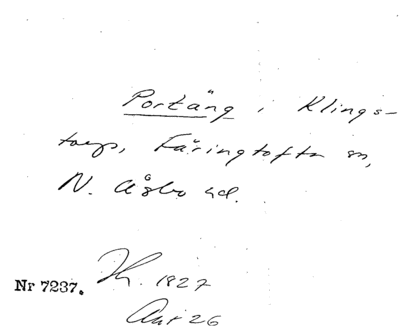 Portäng i Klings-
torp, Färingtofta sn,
N. Åsbo hd.
Nr 7237. Th. 1827
Akt 26